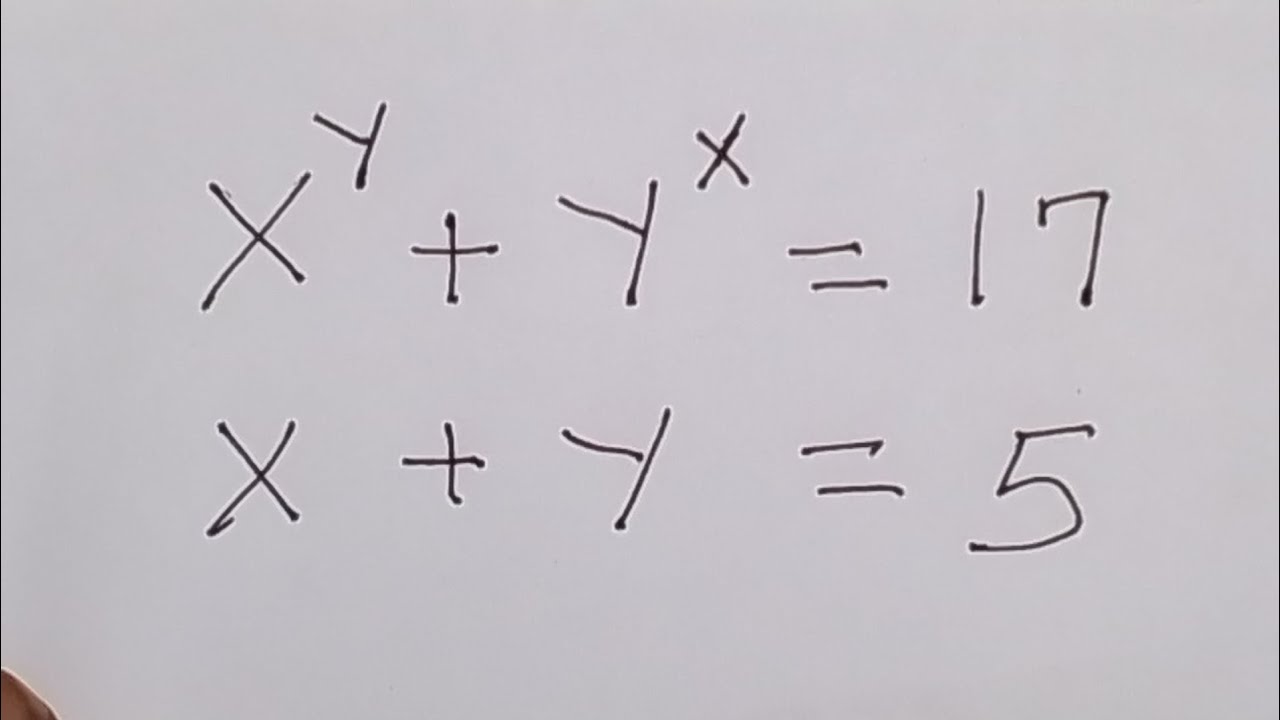 X^Y + Y^X = 17
X + Y = 5